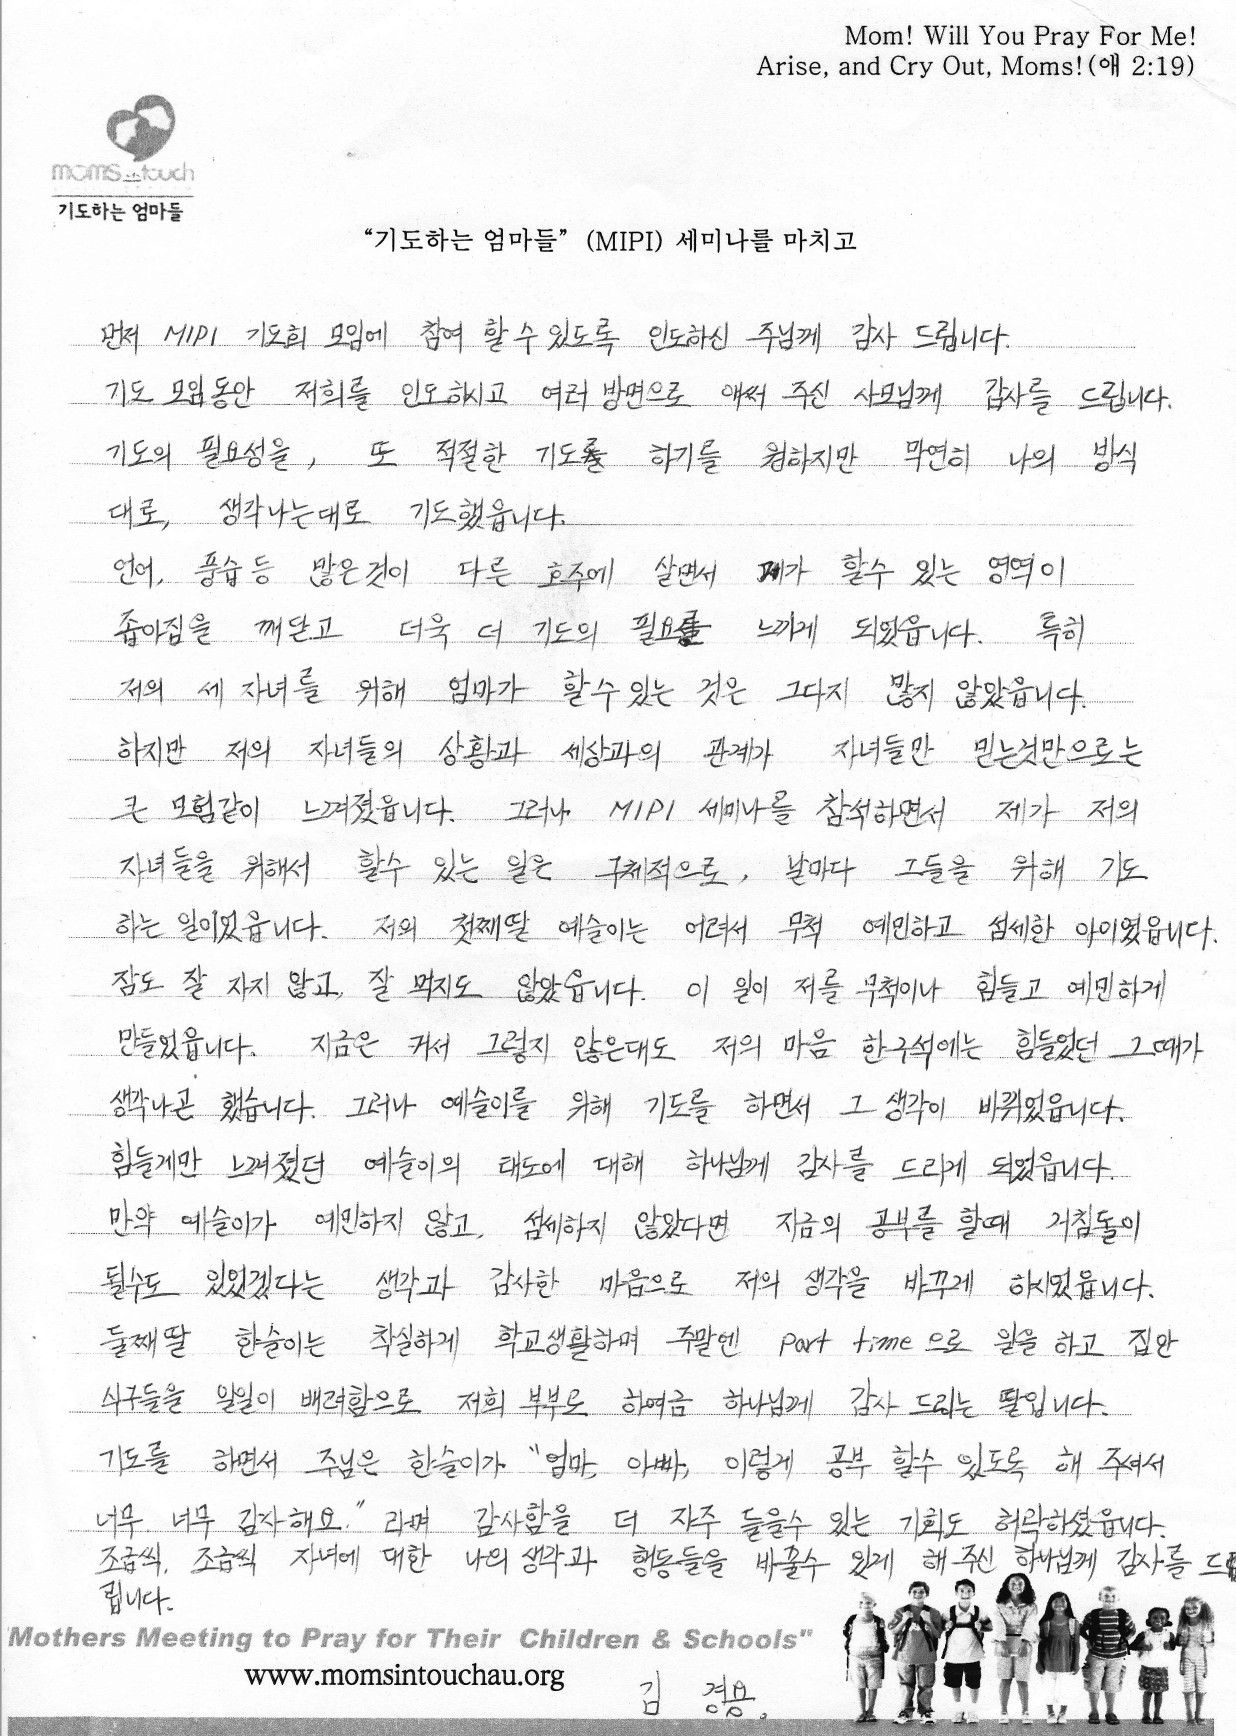 Mom! Will You Pray For Me!
Arise, and Cry Out, Moms!(애 2:19)
moms in touch
기도하는 엄마들
“기도하는 엄마들” (MIPI) 세미나를 마치고
먼저 MIPI 기도회 모임에 참여 할 수 있도록 인도하신 주님께 감사 드립니다.
기도 모임동안 저희를 인도하시고 여러 방면으로 애써 주신 사모님께 감사를 드립니다.
기도의 필요성을, 또 적절한 기도를 하기를 원하지만 막연히 나의 방식
대로, 생각나는대로 기도했읍니다.
언어, 풍습등 많은것이 다른 호주에 살면서 제가 할수 있는 영역이
좁아짐을 깨닫고 더욱 더 기도의 필요를 느끼게 되었읍니다. 특히
저의 세 자녀를 위해 엄마가 할수있는 것은 그다지 많지 않았읍니다.
하지만 저의 자녀들의 상황과 세상과의 관계가 자녀들만 믿는것만으로는
큰 모험같이 느껴졌읍니다. 그러나 MIPI 세미나를 참석하면서 제가 저의
자녀들을 위해서 할수 있는 일은 구체적으로, 날마다 그들을 위해 기도
하는 일이었읍니다. 저의 첫째딸 예슬이는 어려서 무척 예민하고 섬세한 아이였읍니다.
잠도 잘 자지 않고, 잘 먹지도 않았읍니다. 이 일이 저를 무척이나 힘들고 예민하게
만들었읍니다. 지금은 커서 그렇지 않은대도 저의 마음 한구석에는 힘들었던 그때가
생각나곤 했습니다. 그러나 예슬이를 위해 기도를 하면서 그 생각이 바뀌었읍니다.
힘들게만 느껴졌던 예슬이의 태도에 대해 하나님께 감사를 드리게 되었읍니다.
만약 예슬이가 예민하지 않고, 섬세하지 않았다면 지금의 공부를 할때 거침돌이
될수도 있었겠다는 생각과 감사한 마음으로 저의 생각을 바꾸게 하시었읍니다.
둘째 딸 한슬이는 착실하게 학교생활하며 주말엔 part time 으로 일을 하고 집안
식구들을 일일이 배려함으로 저희 부부로 하여금 하나님께 감사 드리는 딸입니다.
기도를 하면서 주님은 한슬이가 “엄마, 아빠, 이렇게 공부 할수 있도록 해 주셔서
너무 너무 감사해요.” 라며 감사함을 더 자주 들을수 있는 기회도 허락하셨읍니다.
조금씩, 조금씩 자녀에 대한 나의 생각과 행동들을 바꿀수 있게 해 주신 하나님께 감사를 드
립니다.
"Mothers Meeting to Pray for Their Children & Schools"
www.momsintouchau.org
김 경용.